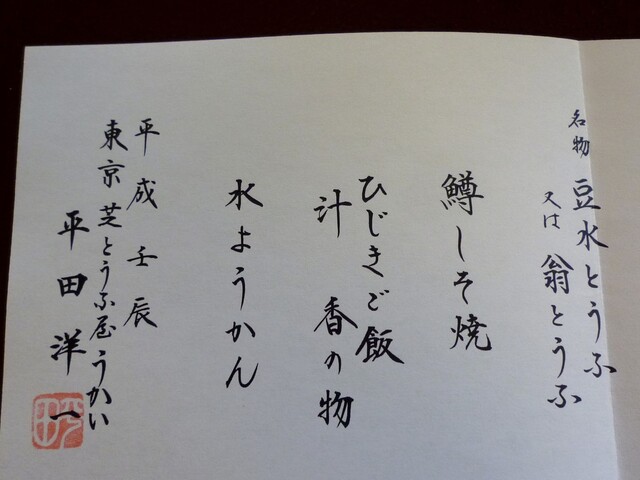 名物 豆水とうふ
又は 翁とうふ
鱒しそ焼
ひじきご飯
汁 香の物
水ようかん
平成壬辰
東京芝とうふ屋うかい
平田洋一